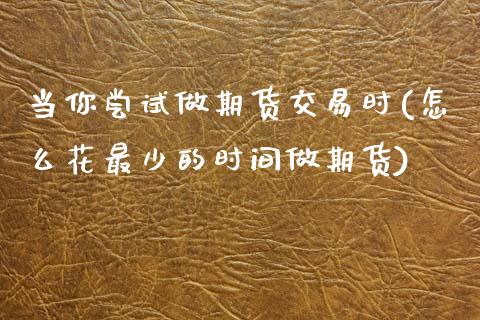 当你尝试做期货交易时(怎
么花最少的时间做期货)